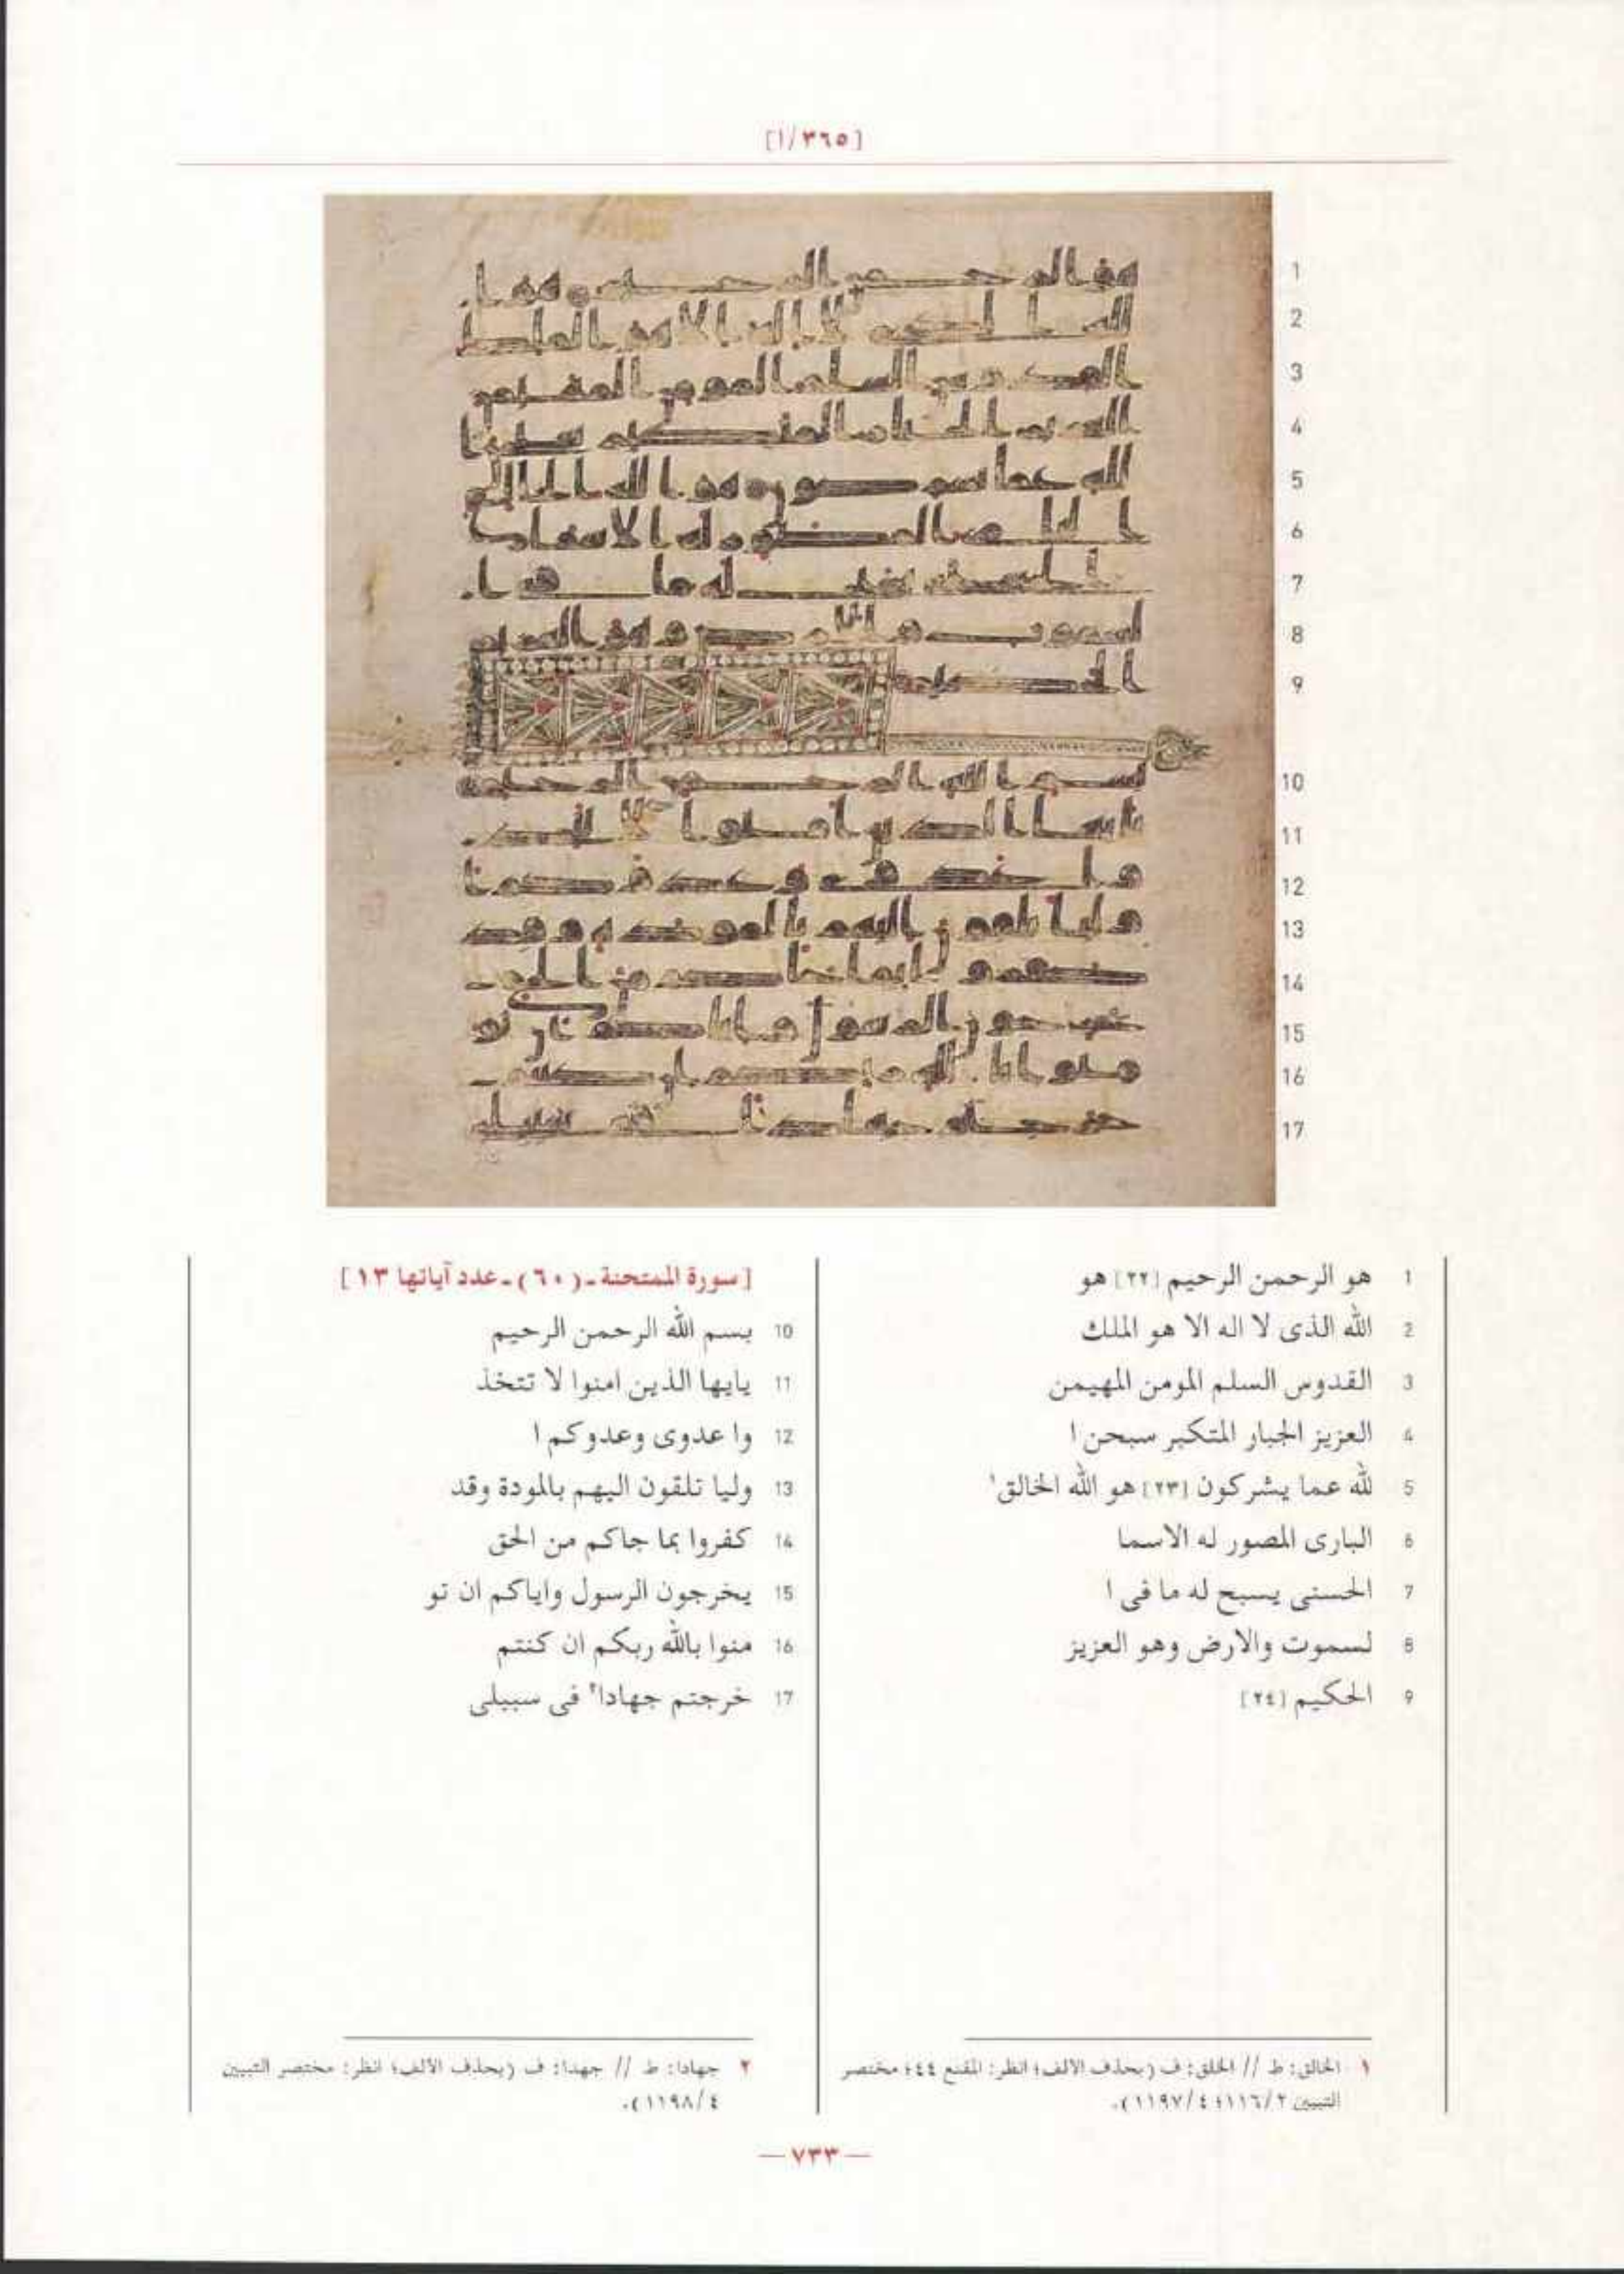 [٣٦٥/ا]
1 هو الرحمن الرحيم [٢٢] هو
2 الله الذى لا اله الا هو الملك
3 القدوس السلم المومن المهيمن
4 العزيز الجبار المتكبر سبحن ا
5 لله عما يشركون [٢٣] هو الله الخالق١
6 البارى المصور له الاسما
7 الحسنى يسبح له ما فى ا
8 لسموت والارض وهو العزيز
9 الحكيم [٢٤]
[سورة الممتحنة ـ (٦٠) ـ عدد آياتها ١٣]
10 بسم الله الرحمن الرحيم
11 يايها الذين امنوا لا تتخذ
12 وا عدوى وعدوكم ا
13 وليا تلقون اليهم بالمودة وقد
14 كفروا بما جاكم من الحق
15 يخرجون الرسول واياكم ان تو
16 منوا بالله ربكم ان كنتم
17 خرجتم جهادا٢ فى سبيلى
١ الخالق: ط // الخلق: ف (بحذف الالف؛ انظر: المقنع ٤٤؛ مختصر
التبيين ١١٦/٢؛ ١١٩٧/٤).
٢ جهادا: ط // جهدا: ف (بحذف الالف؛ انظر: مختصر التبيين
١١٩٨/٤).
— ٧٣٣ —